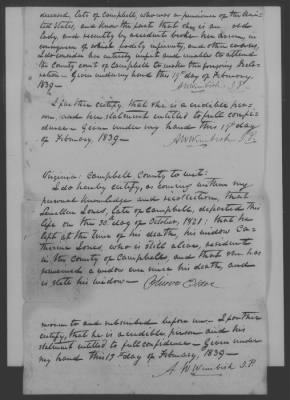 deceased, late of Campbell, who was a pensioner of the Uni-
ted States, and know the fact that this is an old
lady, and recently by accident broke her down, in
consequence of which bodily infirmity, and other causes,
I do consider her entirely unfit and unable to attend
the county court of Campbell to make the foregoing Decla-
ration - Given under my hand this 19th day of February
1839 -
A W Wimbish J.P.
I further certify that she is a credible per-
son, and her statement entitled to full confi-
dence - Given under my hand this 19th day
of February, 1839 -
A W Wimbish J.P.
Virginia: Campbell County to wit:
I do hereby certify, as coming within my
personal knowledge and recollection, that
Jones, late of Campbell, departed this
life on the 30th day of October, 1821: that he
left at the time of his death, his widow Ca-
tharine Jones, who is still alive, resident
in the County of Campbell, and that she has
remained a widow ever since his death, and
is still his widow -
sworn to and subscribed before me - I further
certify, that he is a credible person and his
statement entitled to full confidence - Given under
my hand this 19th day of February, 1839 -
A W Wimbish J.P.